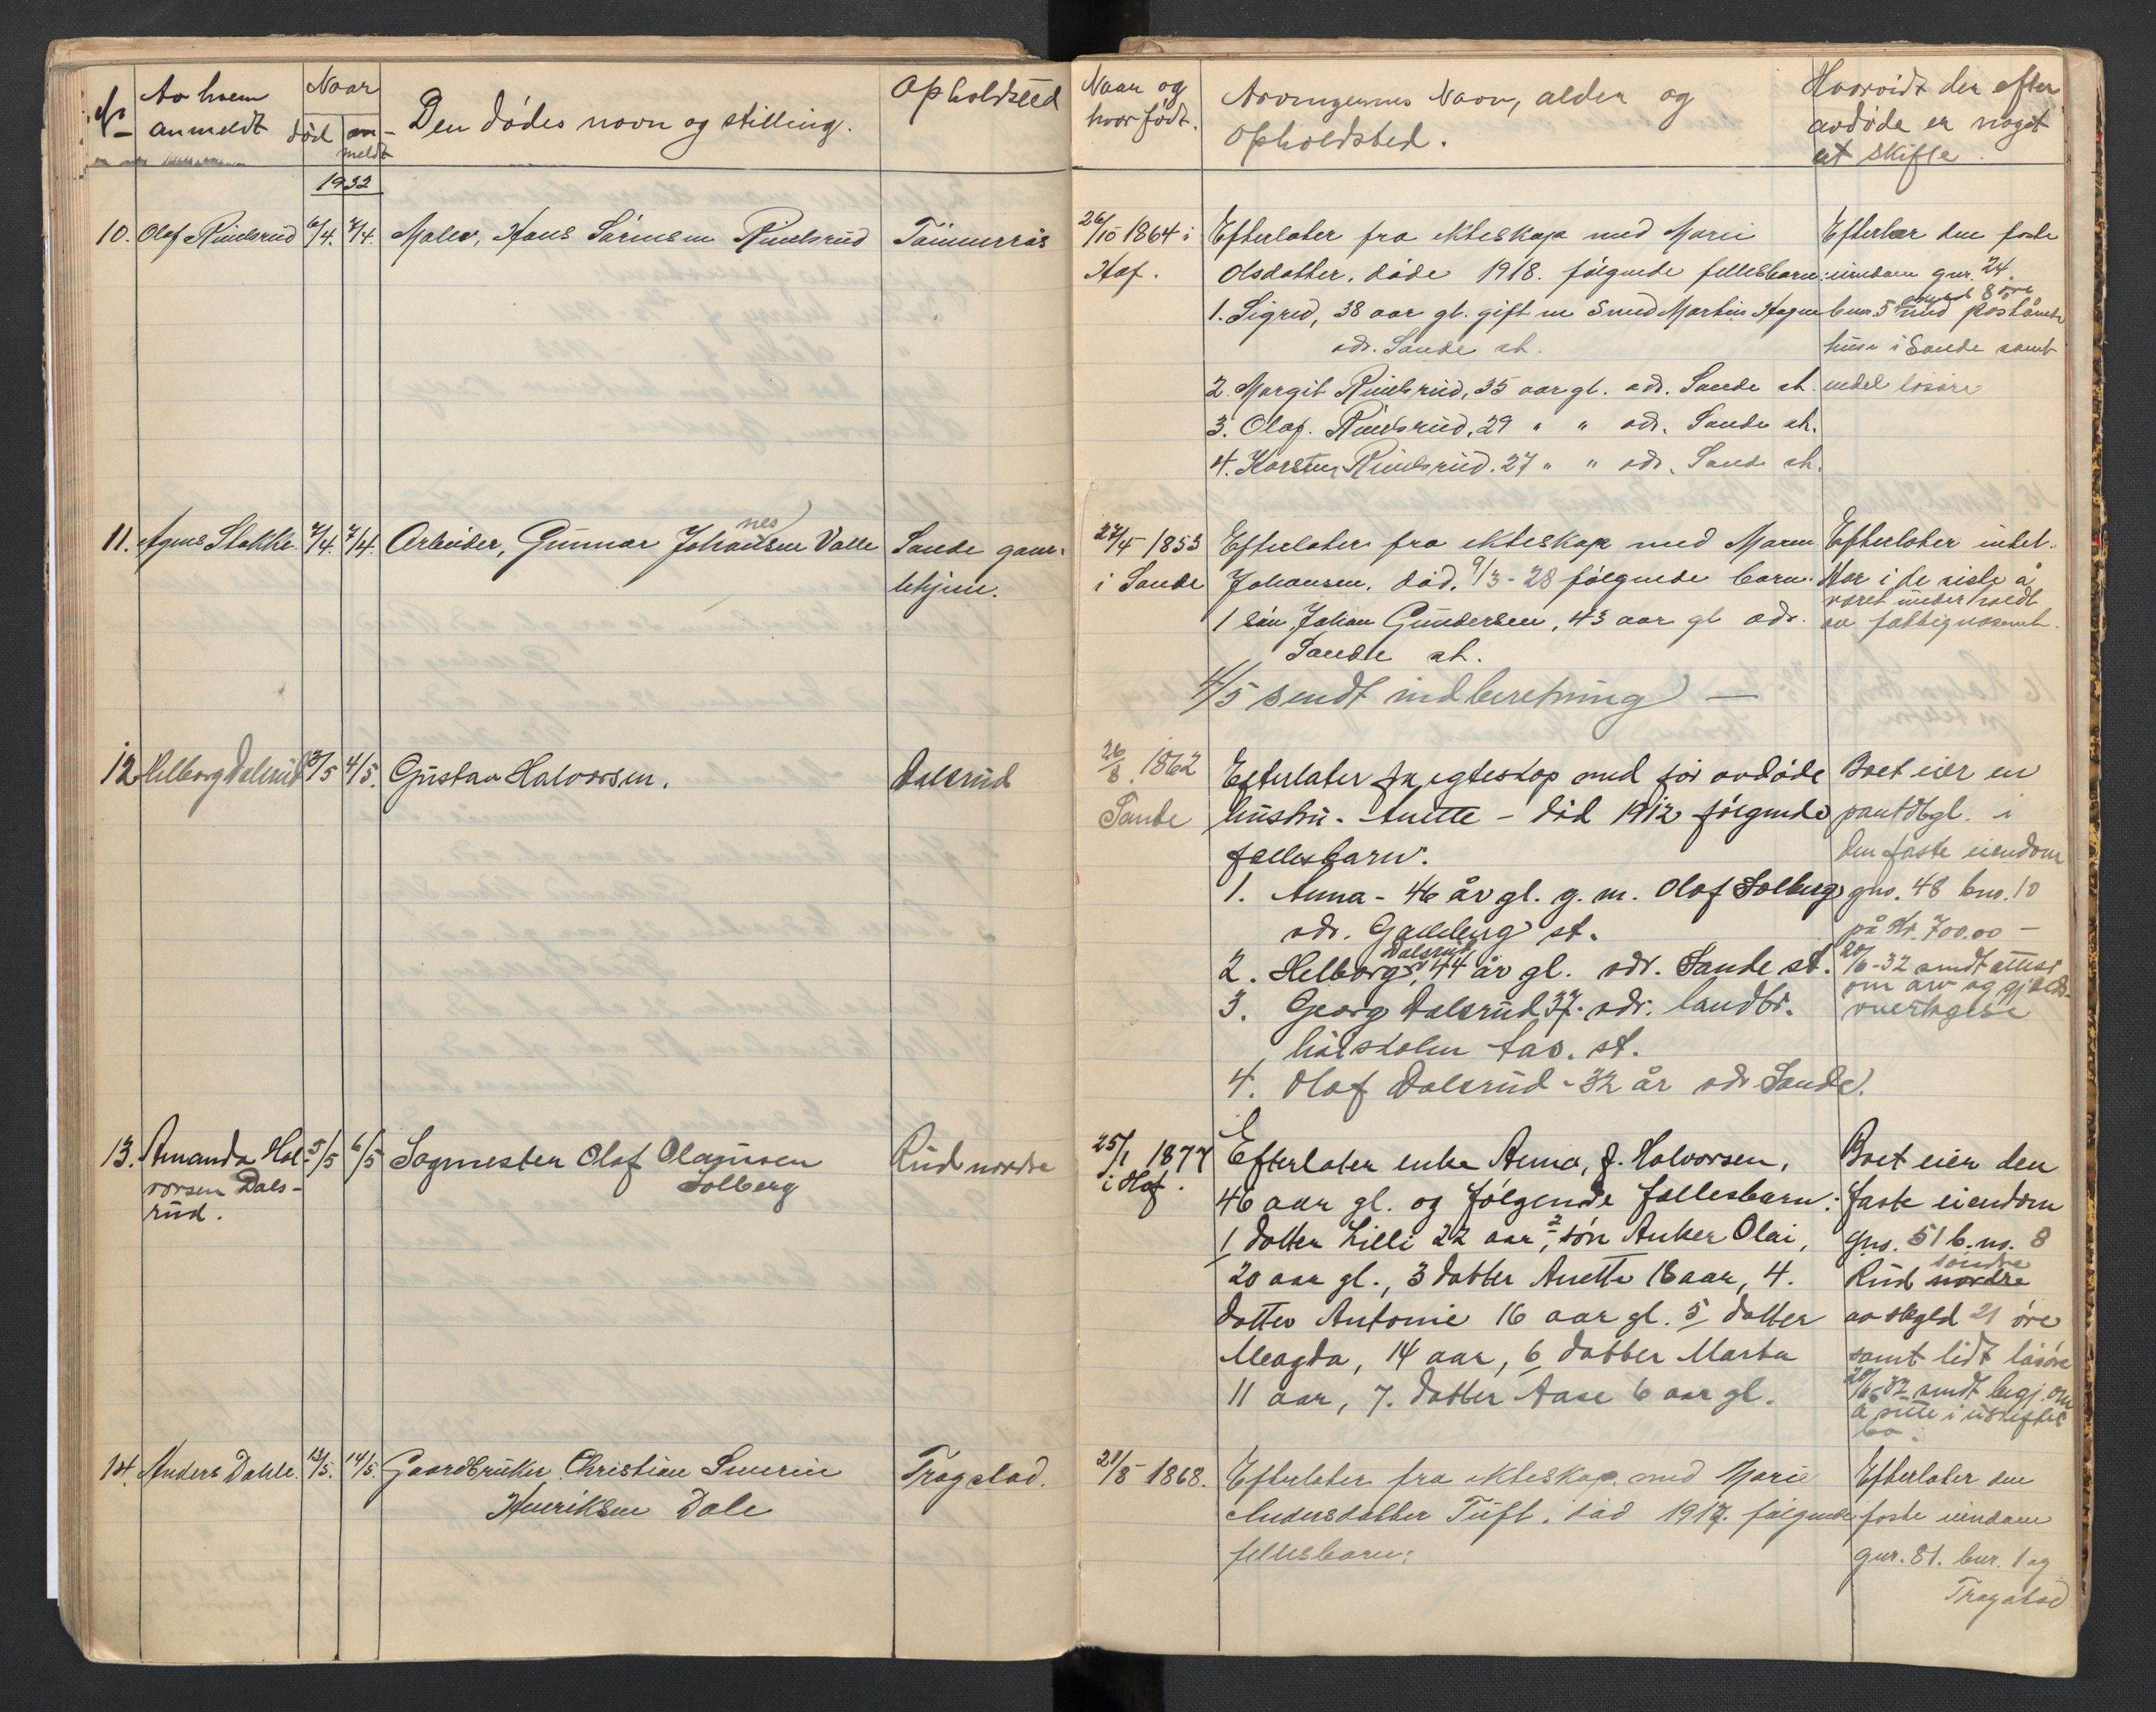 Av hvem
anmeldt
Naar
död
an-
meldt
Den dödes navn og stilling.
Opholdsted
Naar og
hvor født.
Arvingernes Navn, alder og
Opholdsted.
Hvorvidt der efter
avdöde er noget
at skifte.
1932
10. Olaf Rindsrud 6/4. 7/4. Maler, Hans Sörensen Rindsrud Tömmerrås
26/10 1864 i
Hof.
Efterlater fra ekteskap med Marie
Olsdatter, döde 1918. følgende fellesbarn:
1. Sigrid, 38 aar gl. gift m Smed Martin Hagen
adr. Sande st.
2. Margit Rindsrud, 35 aar gl. adr. Sande st.
3. Olaf. Rindsrud, 29 " " adr. Sande st.
4. Karsten Rindsrud. 27 " " adr. Sande st.
Efterlater den faste
eiendom gnr. 24.
bnr. 5 med påstående
huse i Sande samt
endel lösøre
11. Agnes Stokke 7/4. 7/4. Arbeider, Gunnar Johansen Valle
nes
Sande gam-
lehjem.
27/5 1853
i Sande
Efterlater fra ekteskap med Maren
Johansen, död. 9/3-28 følgende barn.
1 sön Johan Gundersen, 43 aar gl adr.
Sande st.
4/5 sendt indberetning —
Efterlater intet.
Har i de siste å
været underholdt
av fattigvæsenet.
12 Helborg Dalsrud 3/5 4/5. Gustav Halvorsen. Dalsrud
26/8 1862
Sande
Efterlater fra egteskap med før avdöde
hustru - Anette - död 1912 følgende
fellesbarn.
1. Anna - 46 år gl. g. m. Olaf Solberg
adr. Galleberg st.
Dalsrud
2. Helborg, 44 år gl. adr. Sande st.
3. Georg Dalsrud 37. adr. landbr.
höiskolen Aas. st.
4. Olaf Dalsrud - 32 år adr Sande.
Boet eier en
pantobgl. i
den faste eiendom
gno. 48 bno. 10
på Kr. 700.00 —
20/6-32 sendt attest
om arv og gjelds-
overtagelse
13. Amanda Hal-
vorsen Dals-
rud.
5/5 6/5 Sagmester Olaf Olausen
Solberg
Rud nordre
25/1 1877
i Hof.
Efterlater enke Anna, f. Halvorsen,
46 aar gl. og følgende fellesbarn:
1 datter Lilli 22 aar, 2 sön Anker Olai,
20 aar gl., 3 datter Anette 18 aar, 4.
datter Antonie 16 aar gl. 5 datter
Magda, 14 aar, 6 datter Marta
11 aar, 7. datter Aase 6 aar gl.
Boet eier den
faste eiendom
gno. 51 b.no. 8
söndre
Rud nordre
av skyld 21 öre
samt lidt lösöre
20/6-32 sendt begj. om
å sitte i uskiftet
bo.
14. Anders Dahle. 13/5. 14/5. Gaardbruker Christian Severin
Henriksen Dale
Tragstad.
28/8 1868.
Efterlater fra ekteskap med Marie
Andersdatter Tuft, död 1917. følgende
fellesbarn:
Efterlater den
faste eiendom
gnr. 81. bnr. 1 og
Tragstad